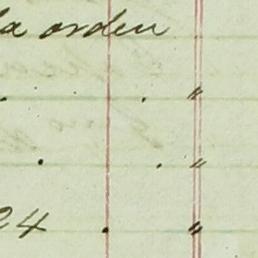 la orden
. . "
. . "
24 . "